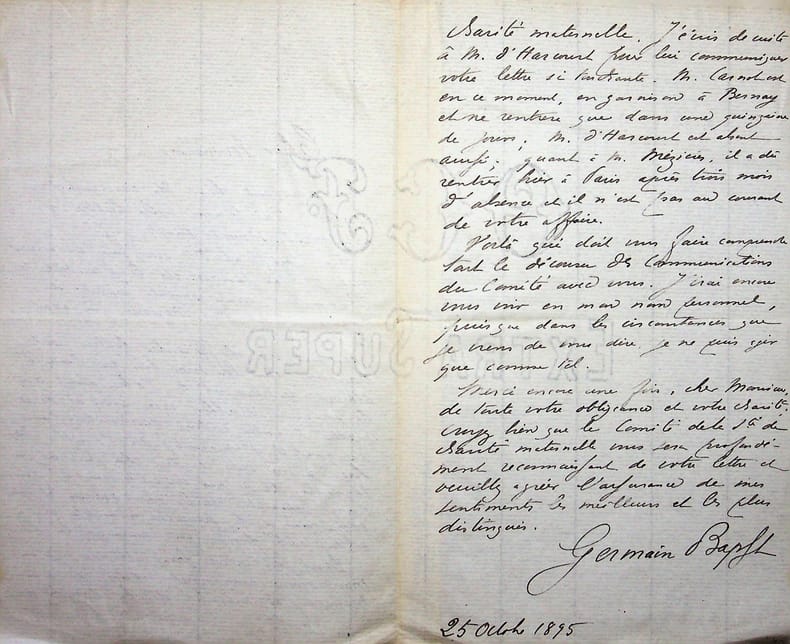 charité maternelle. J'écris de suite
à M. d'Harcourt pour lui communiquer
votre lettre si touchante. M. Carnot est
en ce moment, en garnison à Bernay
et ne rentrera que dans une quinzaine
de jours; M. d'Harcourt est absent
aussi; quant à M. Mézières, il a dû
rentrer hier à Paris après trois mois
d'absence et il n'est pas au courant
de votre affaire.
Voilà qui doit vous faire comprendre
tout le décousu des communications
du Comité avec vous. J'irai encore
vous voir en mon nom personnel,
puisque dans les circonstances que
je viens de vous dire, je ne puis agir
que comme tel.
Merci encore une fois, cher Monsieur,
de toute votre obligeance et votre charité,
croyez bien que le Comité de la Sté de
charité maternelle vous sera profondé-
ment reconnaissant de votre lettre et
veuillez agréer l'assurance de mes
sentiments les meilleurs et les plus
distingués.
Germain Bapst
25 Octobre 1895
EXTRA SUPER